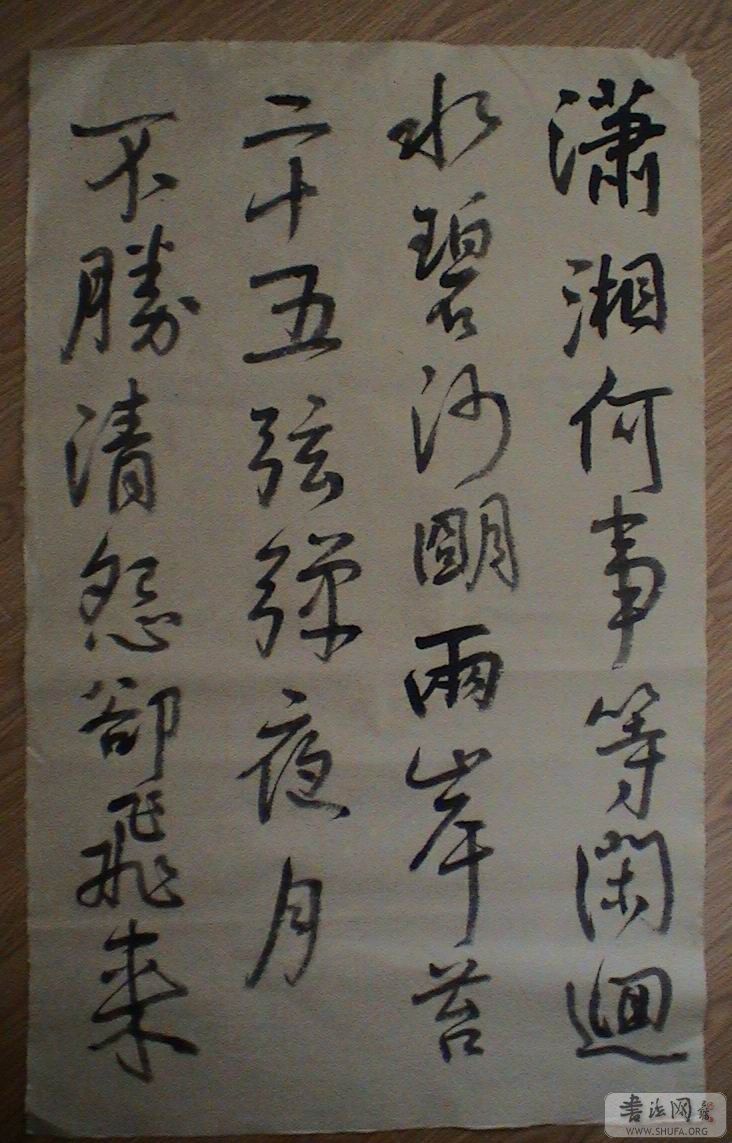 潇湘何事等閑迴
水碧沙明兩岸苔
二十五弦弹夜月
不勝清怨卻飛来
書法网
WWW.SHUFA.ORG